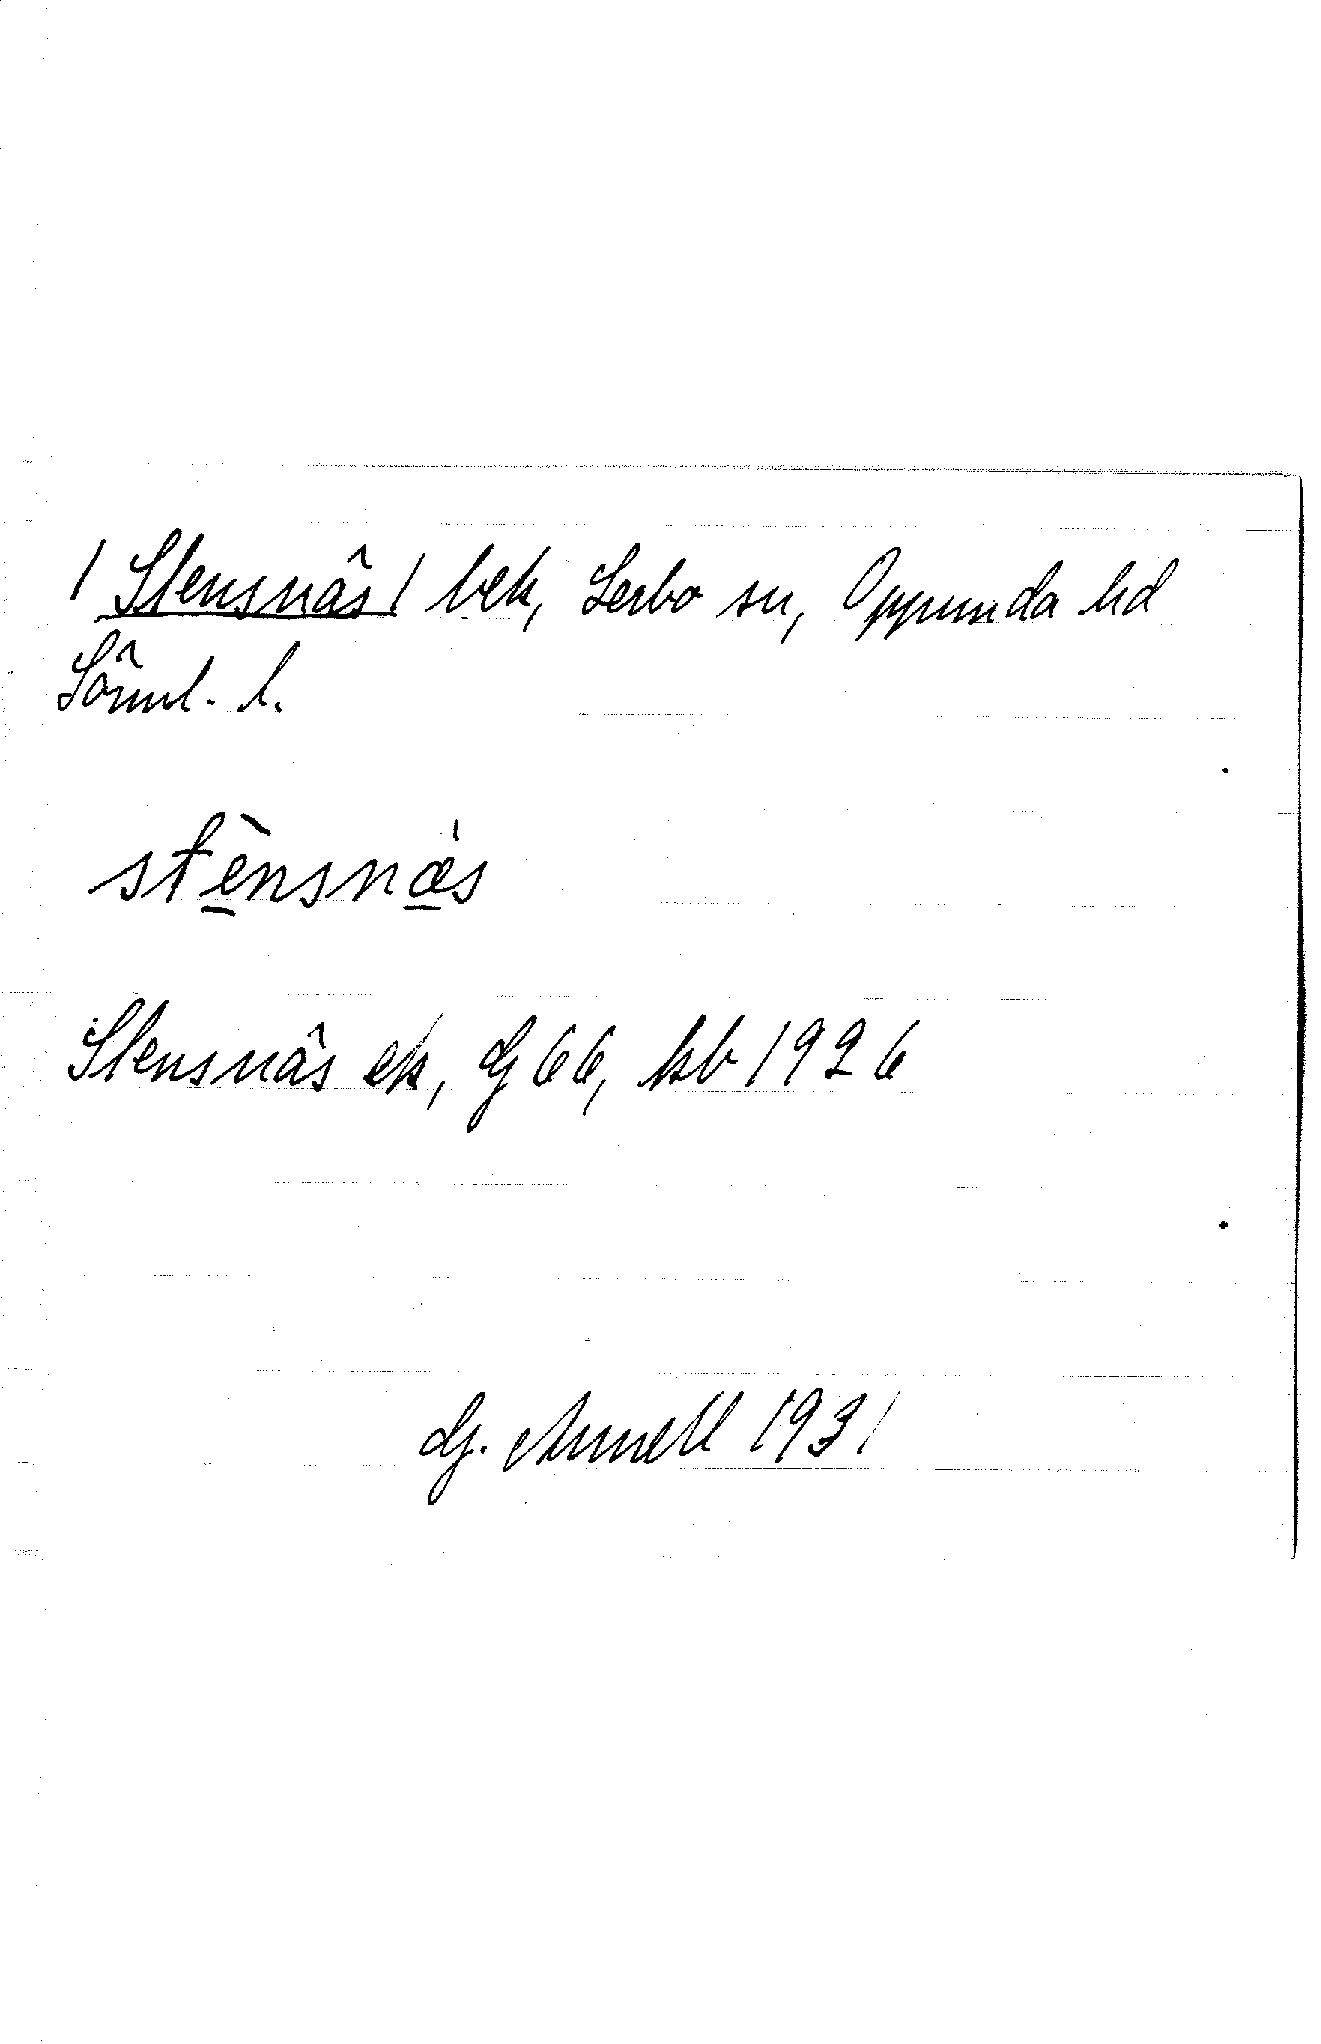 / Stensnäs / bek, Lerbo sn, Oppunda hd
Sörml. l.
stènsnæ̀s
Stensnäs ek, dj 66, kb 1926
G. Arnell 1931